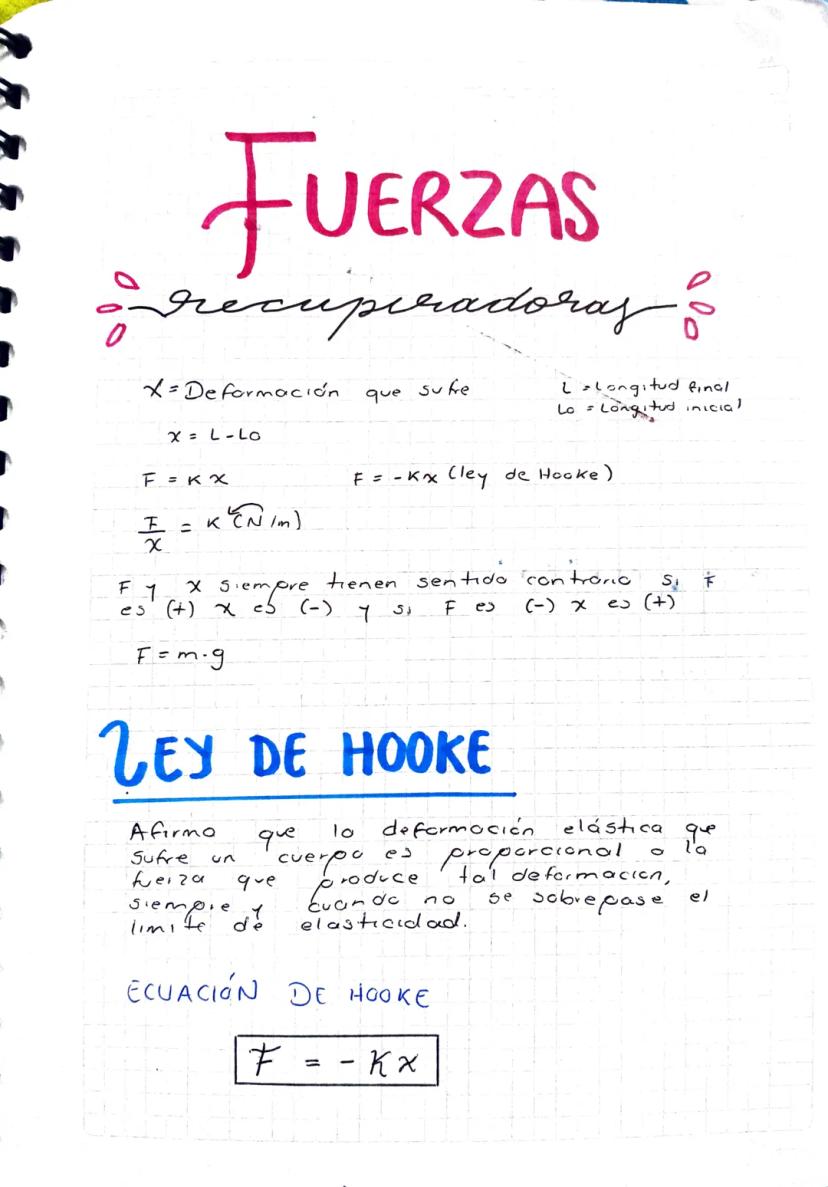 FUERZAS
recuperadoras
x = Deformación que sufre
L = Longitud final
Lo = Longitud inicial
x = L - Lo
F = K x
F = - Kx (ley de Hooke)
F/x = K (N/m)
F y x siempre tienen sentido contrario si F
es (+) x es (-) y si F es (-) x es (+)
F = m · g
LEY DE HOOKE
Afirma que la deformación elástica que
sufre un cuerpo es proporcional a la
fuerza que produce tal deformacion,
siempre y cuando no se sobrepase el
limite de elasticidad.
ECUACIÓN DE HOOKE
F = - Kx